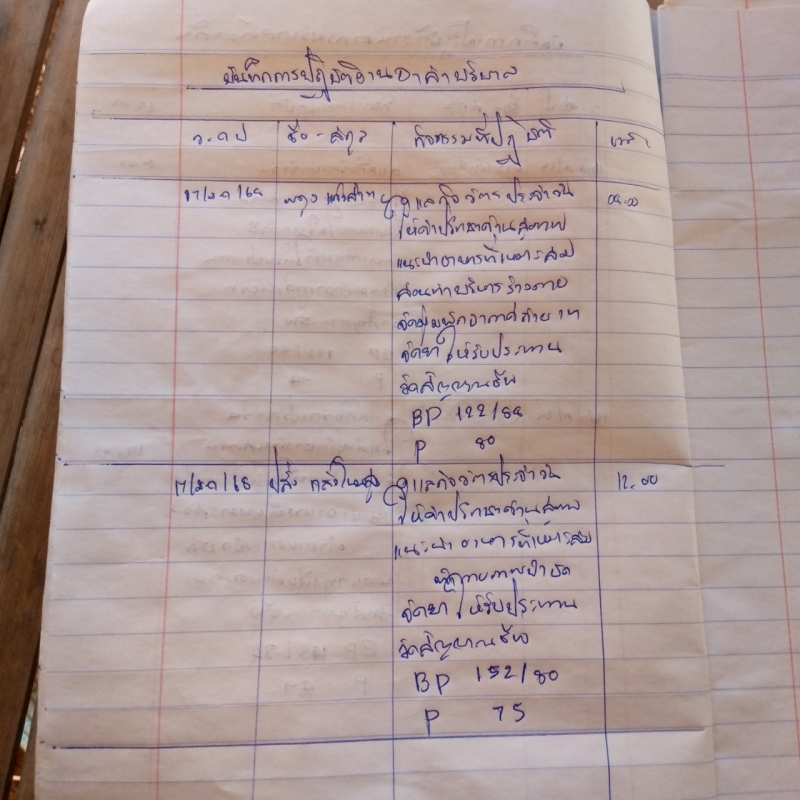 บันทึกการปฏิบัติงานอาสาบริบาล
ว.ด.ป ชื่อ-สกุล กิจกรรมที่ปฏิบัติ เวลา
17/ม.ค/68 ดูแลกิจวัตรประจำวัน 09.00
ให้คำปรึกษาด้านสุขภาพ
แนะนำอาหารที่เหมาะสม
สอนท่าบริหารร่างกาย
จัดยาให้รับประทาน
วัดสัญญาณชีพ
BP 122/88
P 80
17/ม.ค/68 ดูแลกิจวัตรประจำวัน 12.00
ให้คำปรึกษาด้านสุขภาพ
แนะนำอาหารที่เหมาะสม
ทำกายภาพบำบัด
จัดยาให้รับประทาน
วัดสัญญาณชีพ
BP 152/80
P 75